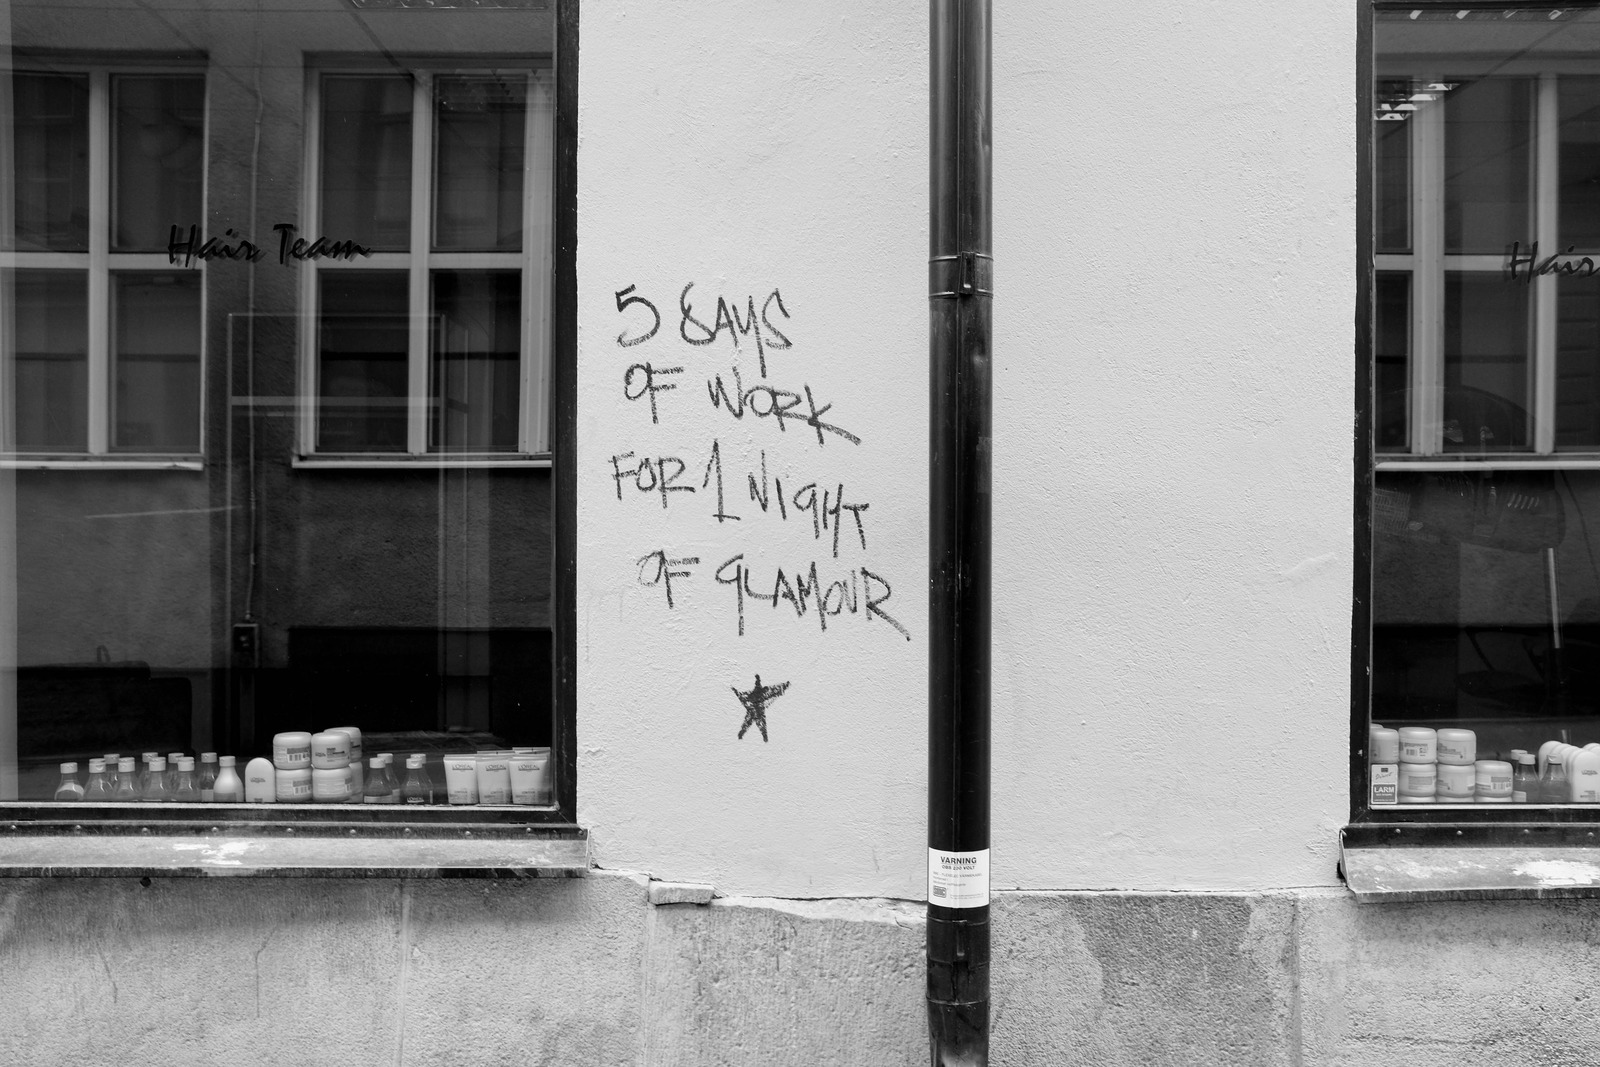 Hair Team
5 DAYS
OF WORK
FOR 1 NIGHT
OF GLAMOUR
Hair
LARM
VARNING
OBS 230 VOLT